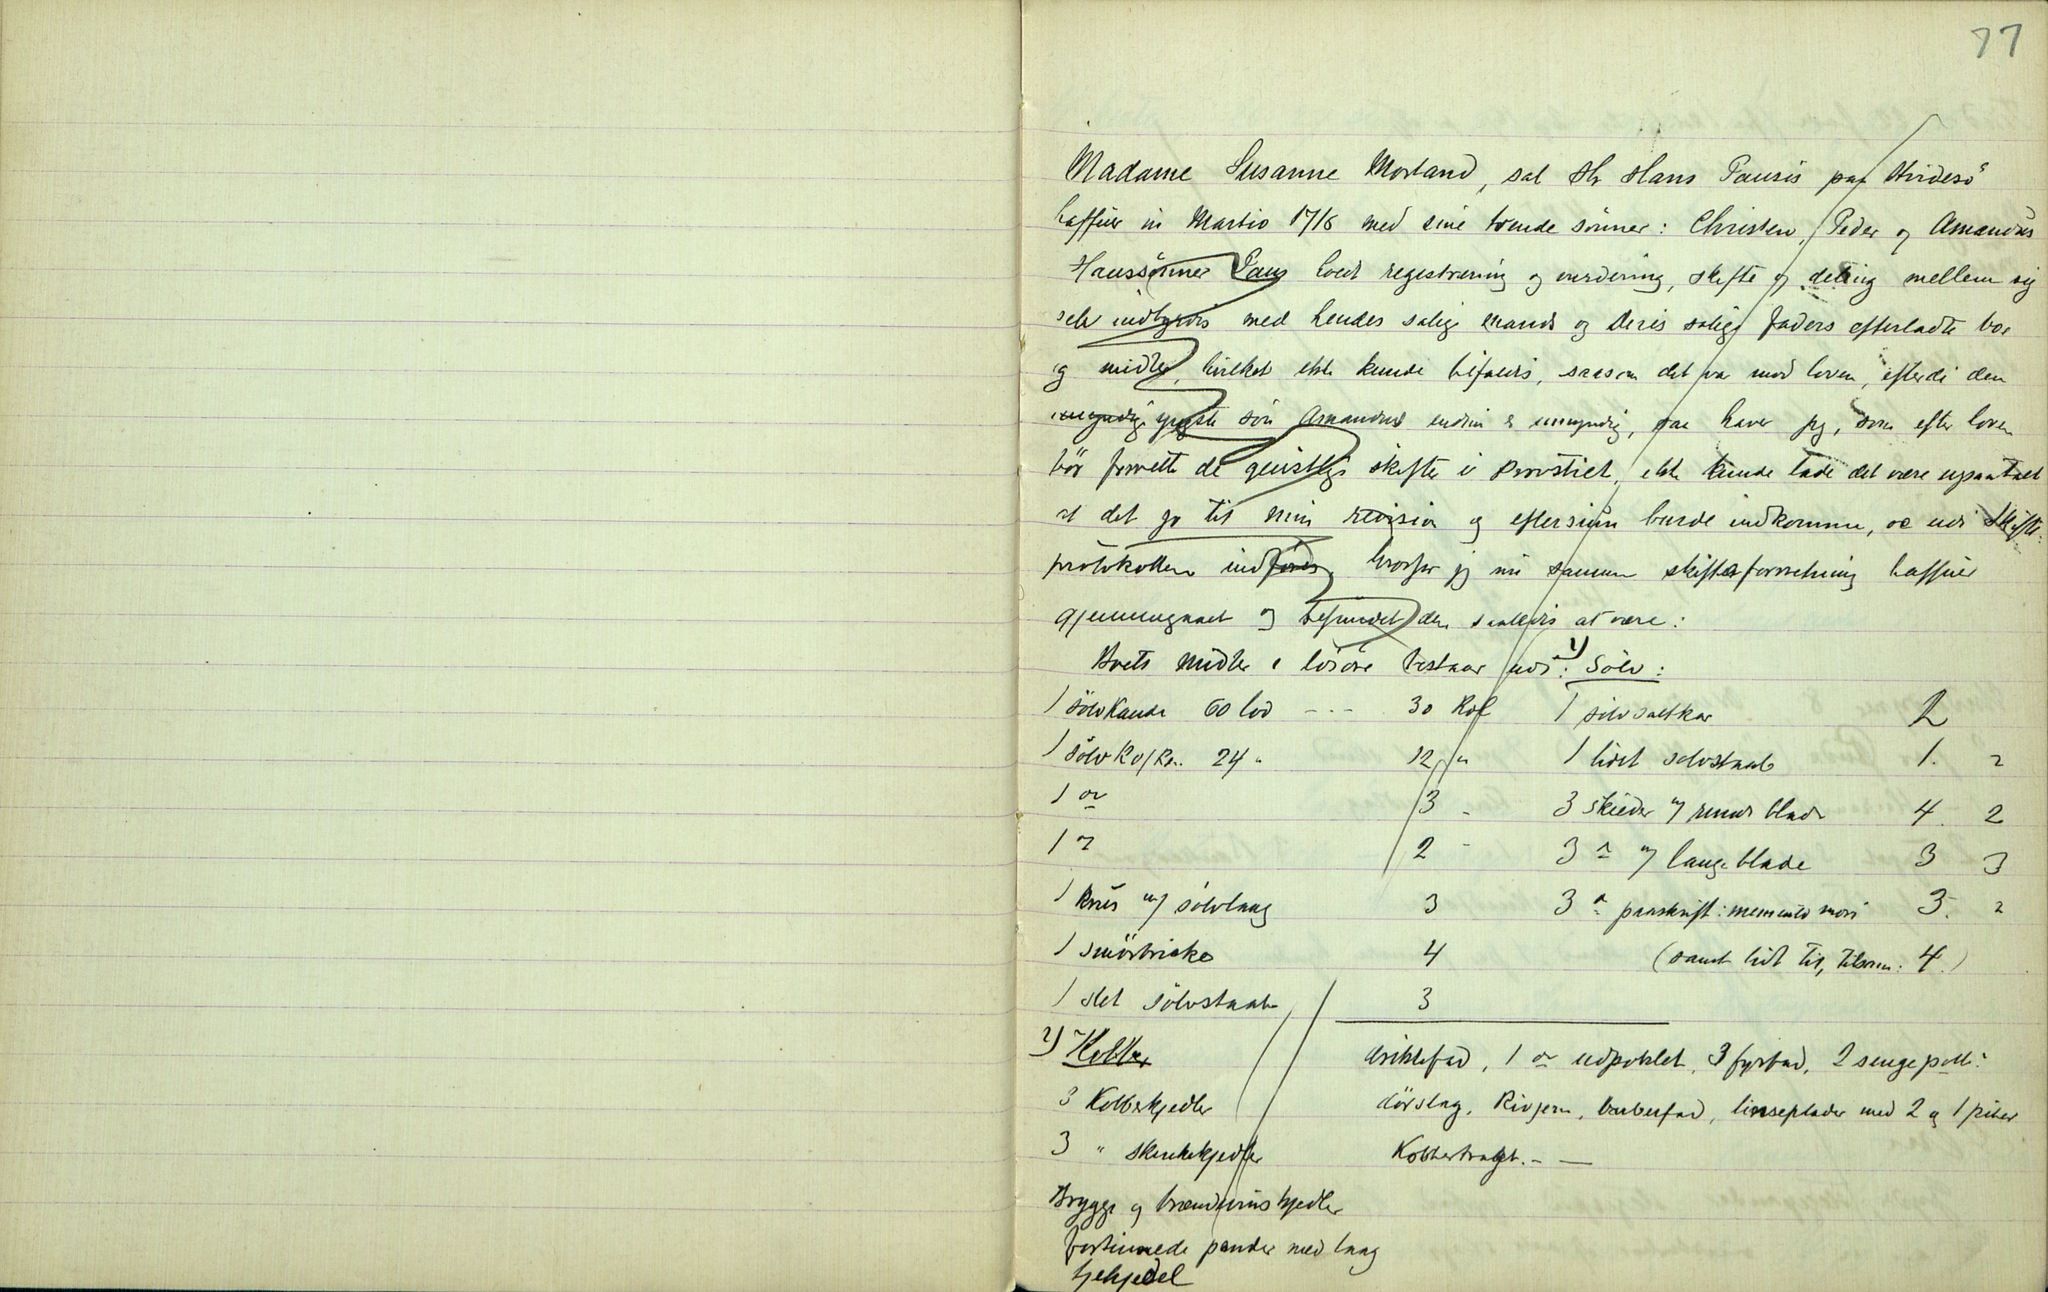 77
Madame Susanne Morland, sal Hr Hans Pausis paa Hvidesö
haffuer in Martio 1718 med sine trende sönner: Christen, Peder og Amandus
Hanssönner Paus holdt registrering og vurdering, skifte og deling mellem sig
selv indbyrdis med hendes salige mands og deris salige faders efterladte boe
og midler, hvilket ikke kunde bifaldis, saasom det var mod loven, efterdi den
umyndige yngste sön Amandus endnu er umyndig, saa haver jeg, som efter loven
bör forrette de geistlige skifter i Provstiet, ikke kunde lade det være upaatalt
at det jo til min revision og eftersiun burde indkomme, oc udi Skifte-
protokollen indföres, hvorfor jeg nu samme skifteforretning haffuer
gjennemgaaet og befundet den saaledis at være:
Boets midler i lösöre bestaar udi: 1) Sölv:
1 sölvkande 60 lod --- 30 Rdl 1 sölvsaltkar 2
1 sölv 24 " 12 " 1 lidet sölvstaab 1. 2
1 do 3 - 3 skieder m/ runde blade 4. 2
1 do 2 - 3 do m/ lange blade 3 3
1 krus m/ sölvlaag 3 3 do paaskrift: memento mori 3. 2
1 smörbricke 4 (samt lidt til, tilsam: 4.)
1 slet sölvstaab 3
2) Kobber
3 Kobberkjedler
3 " skenkekjedler
Brygge og brændevins kjedler
fortinnede pander med laag
tjekjedel
fad, 1 do udpoklet, 3 fyrfad, 2 sengepott:
dörslag, Rivjern, barberfad, linseplader med 2 og 1 piber
Kobbertragt. - —